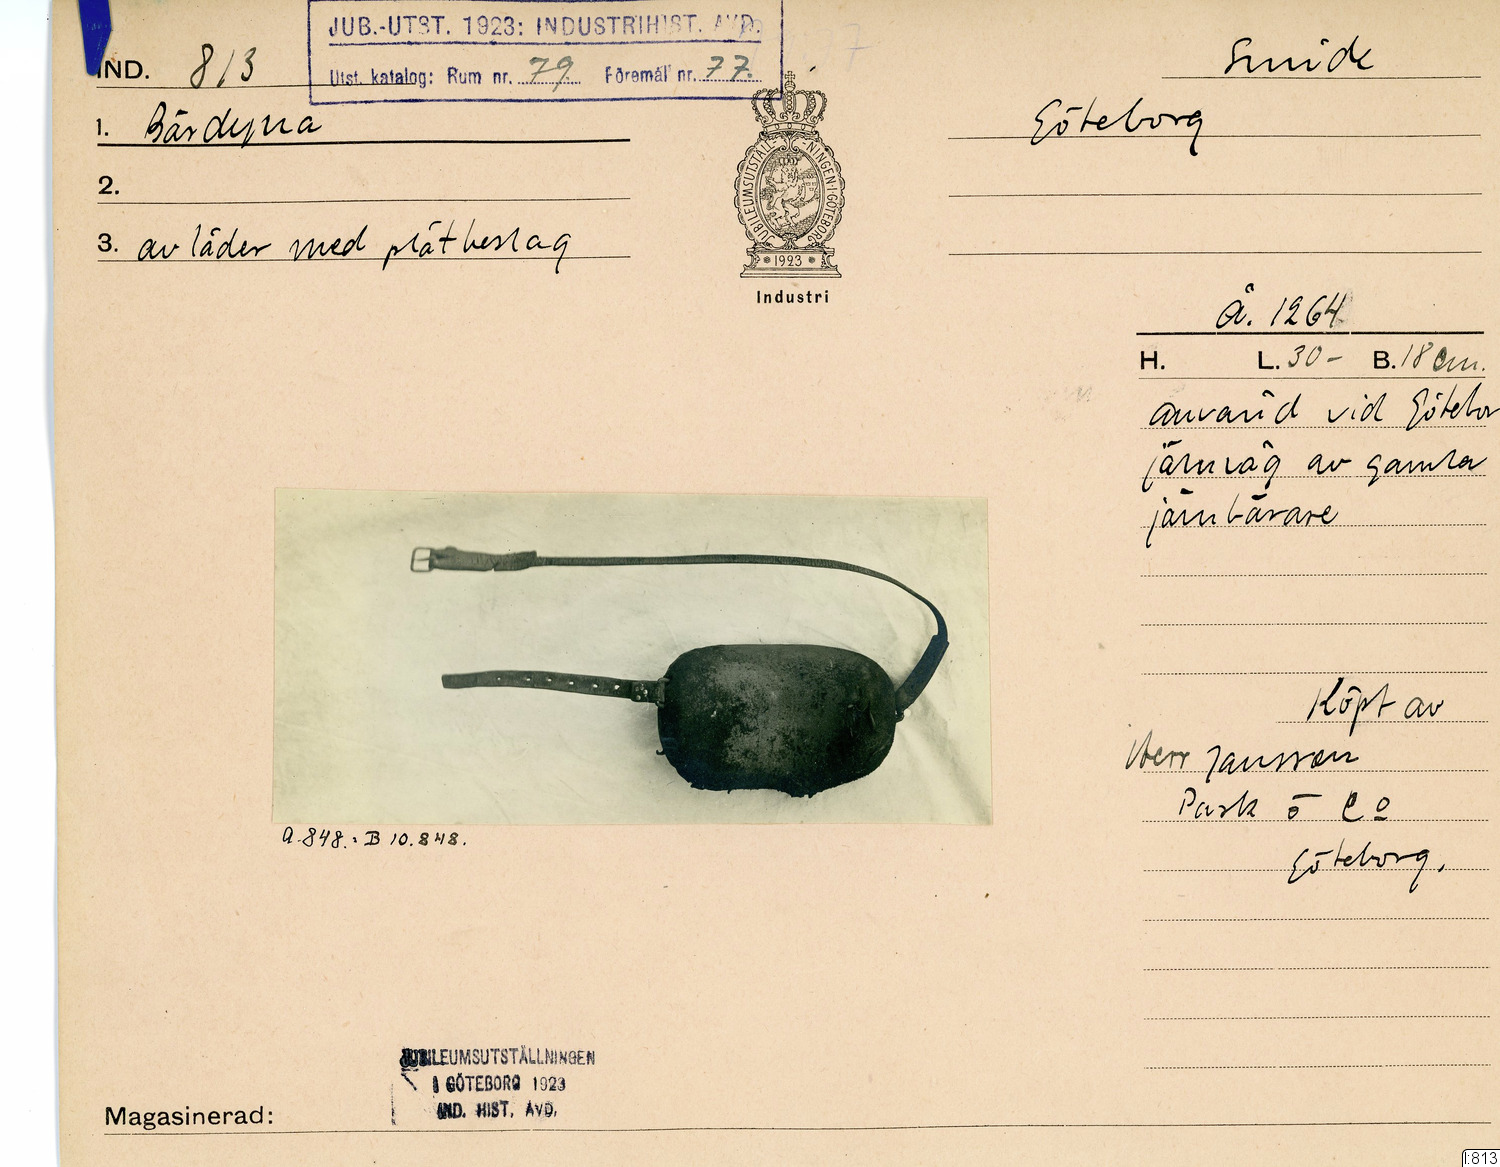 JUB.-UTST. 1923: INDUSTRIHIST. AVD.
Utst. katalog: Rum nr. 79 Föremål nr. 77.
IND. 813
1. Bärdyna
2.
3. av läder med plåtbeslag
JUBILEUMSUTSTÄLLNINGEN I GÖTEBORG
1923
Industri
Smide
Göteborg
Å. 1264
H. L. 30 - B. 18 cm.
använd vid Götebor
järnväg av gamla
järnbärare
Köpt av
Herr Janssen
Park o Co
Göteborg.
A.848.: B 10.848.
JUBILEUMSUTSTÄLLNINGEN
I GÖTEBORG 1923
IND. HIST. AVD.
Magasinerad:
I:813